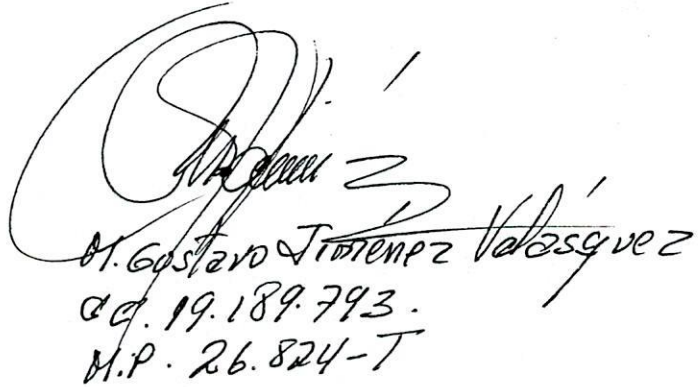 M. Gustavo Jiménez Velásquez
C.C. 19.189.793.
M.P. 26.824-T